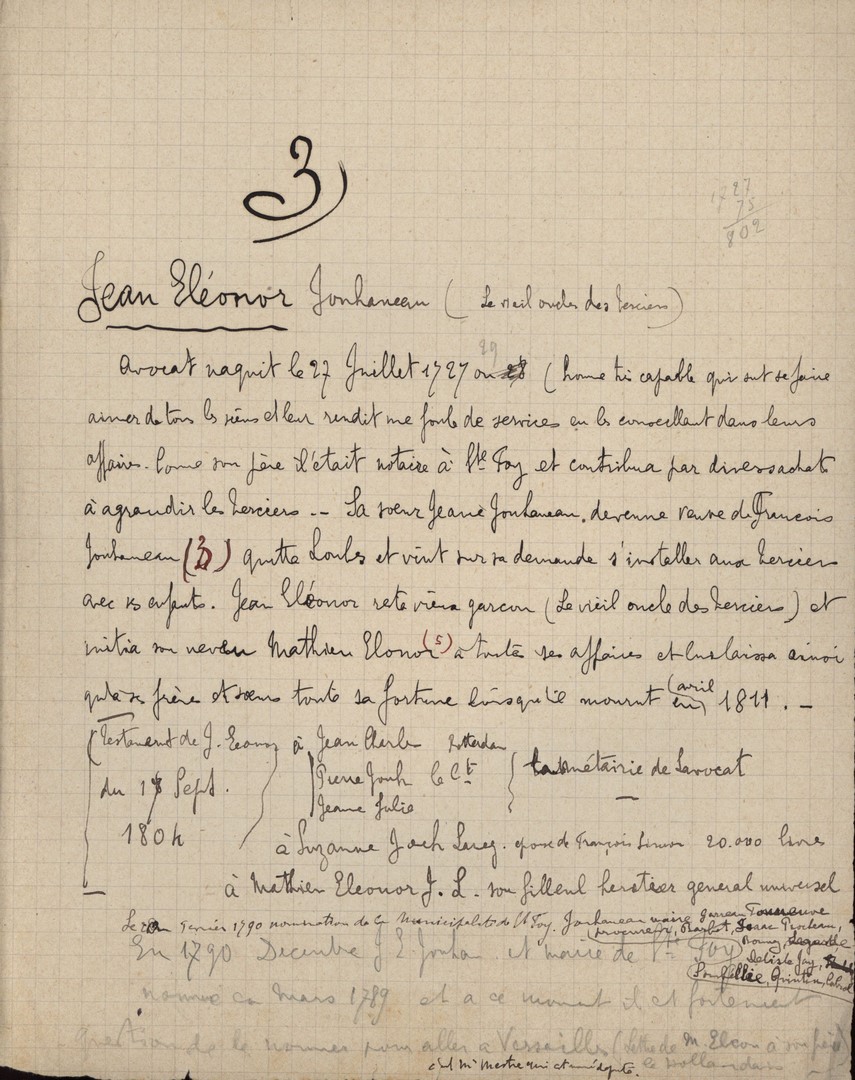 3
1727
75
802
Jean Eléonor Jouhaneau (Le vieil oncle des Merciers)
29
Avocat naquit le 27 Juillet 1727 ou 28 (home très capable qui sut se faire
aimer de tous les siens et leur rendit une foule de services en les conseillant dans leurs
affaires. Come son père il était notaire à Ste Foy et contribua par divers achats
à agrandir les Merciers -- Sa soeur Jeane Jouhaneau, devenue veuve de François
Jouhaneau (3) quitta Loubes et vint sur sa demande s'installer aux Merciers
avec ses enfants. Jean Eléonor resta vieux garcon (Le vieil oncle des Merciers) et
initia son neveu Mathieu Elonor (5) a toutes ses affaires et lui laissa ainsi
qu'à ses frère et soeurs toute sa fortune lorsqu'il mourut (avril) en 1811. -
(Testament de J. Eeonor à Jean Charles Rotterdam
du 18 Sept. Pierre Jouh le Ct la métairie de Lavocat
1804 Jeane Julie
à Suzanne Jouh Lareg. epouse de François 20.000 livres
à Mathieu Eleonor J. L. son filleul heretier general universel
Le fevrier 1790 nomination de la Municipalité de St Foy. Jouhaneau maire Jarreau Tourneuve
procureur, Barbot, Isaac Rocteau,
En 1790 Decembre J. E. Jouha. est maire de Ste Foy
Delisle Jay,
nommé en Mars 1789 et a ce moment il est fortement
question de le nommer pour aller a Versailles (lettre de M. Eleon à son père
c'est Mr Mestre qui est une député. le hollandais